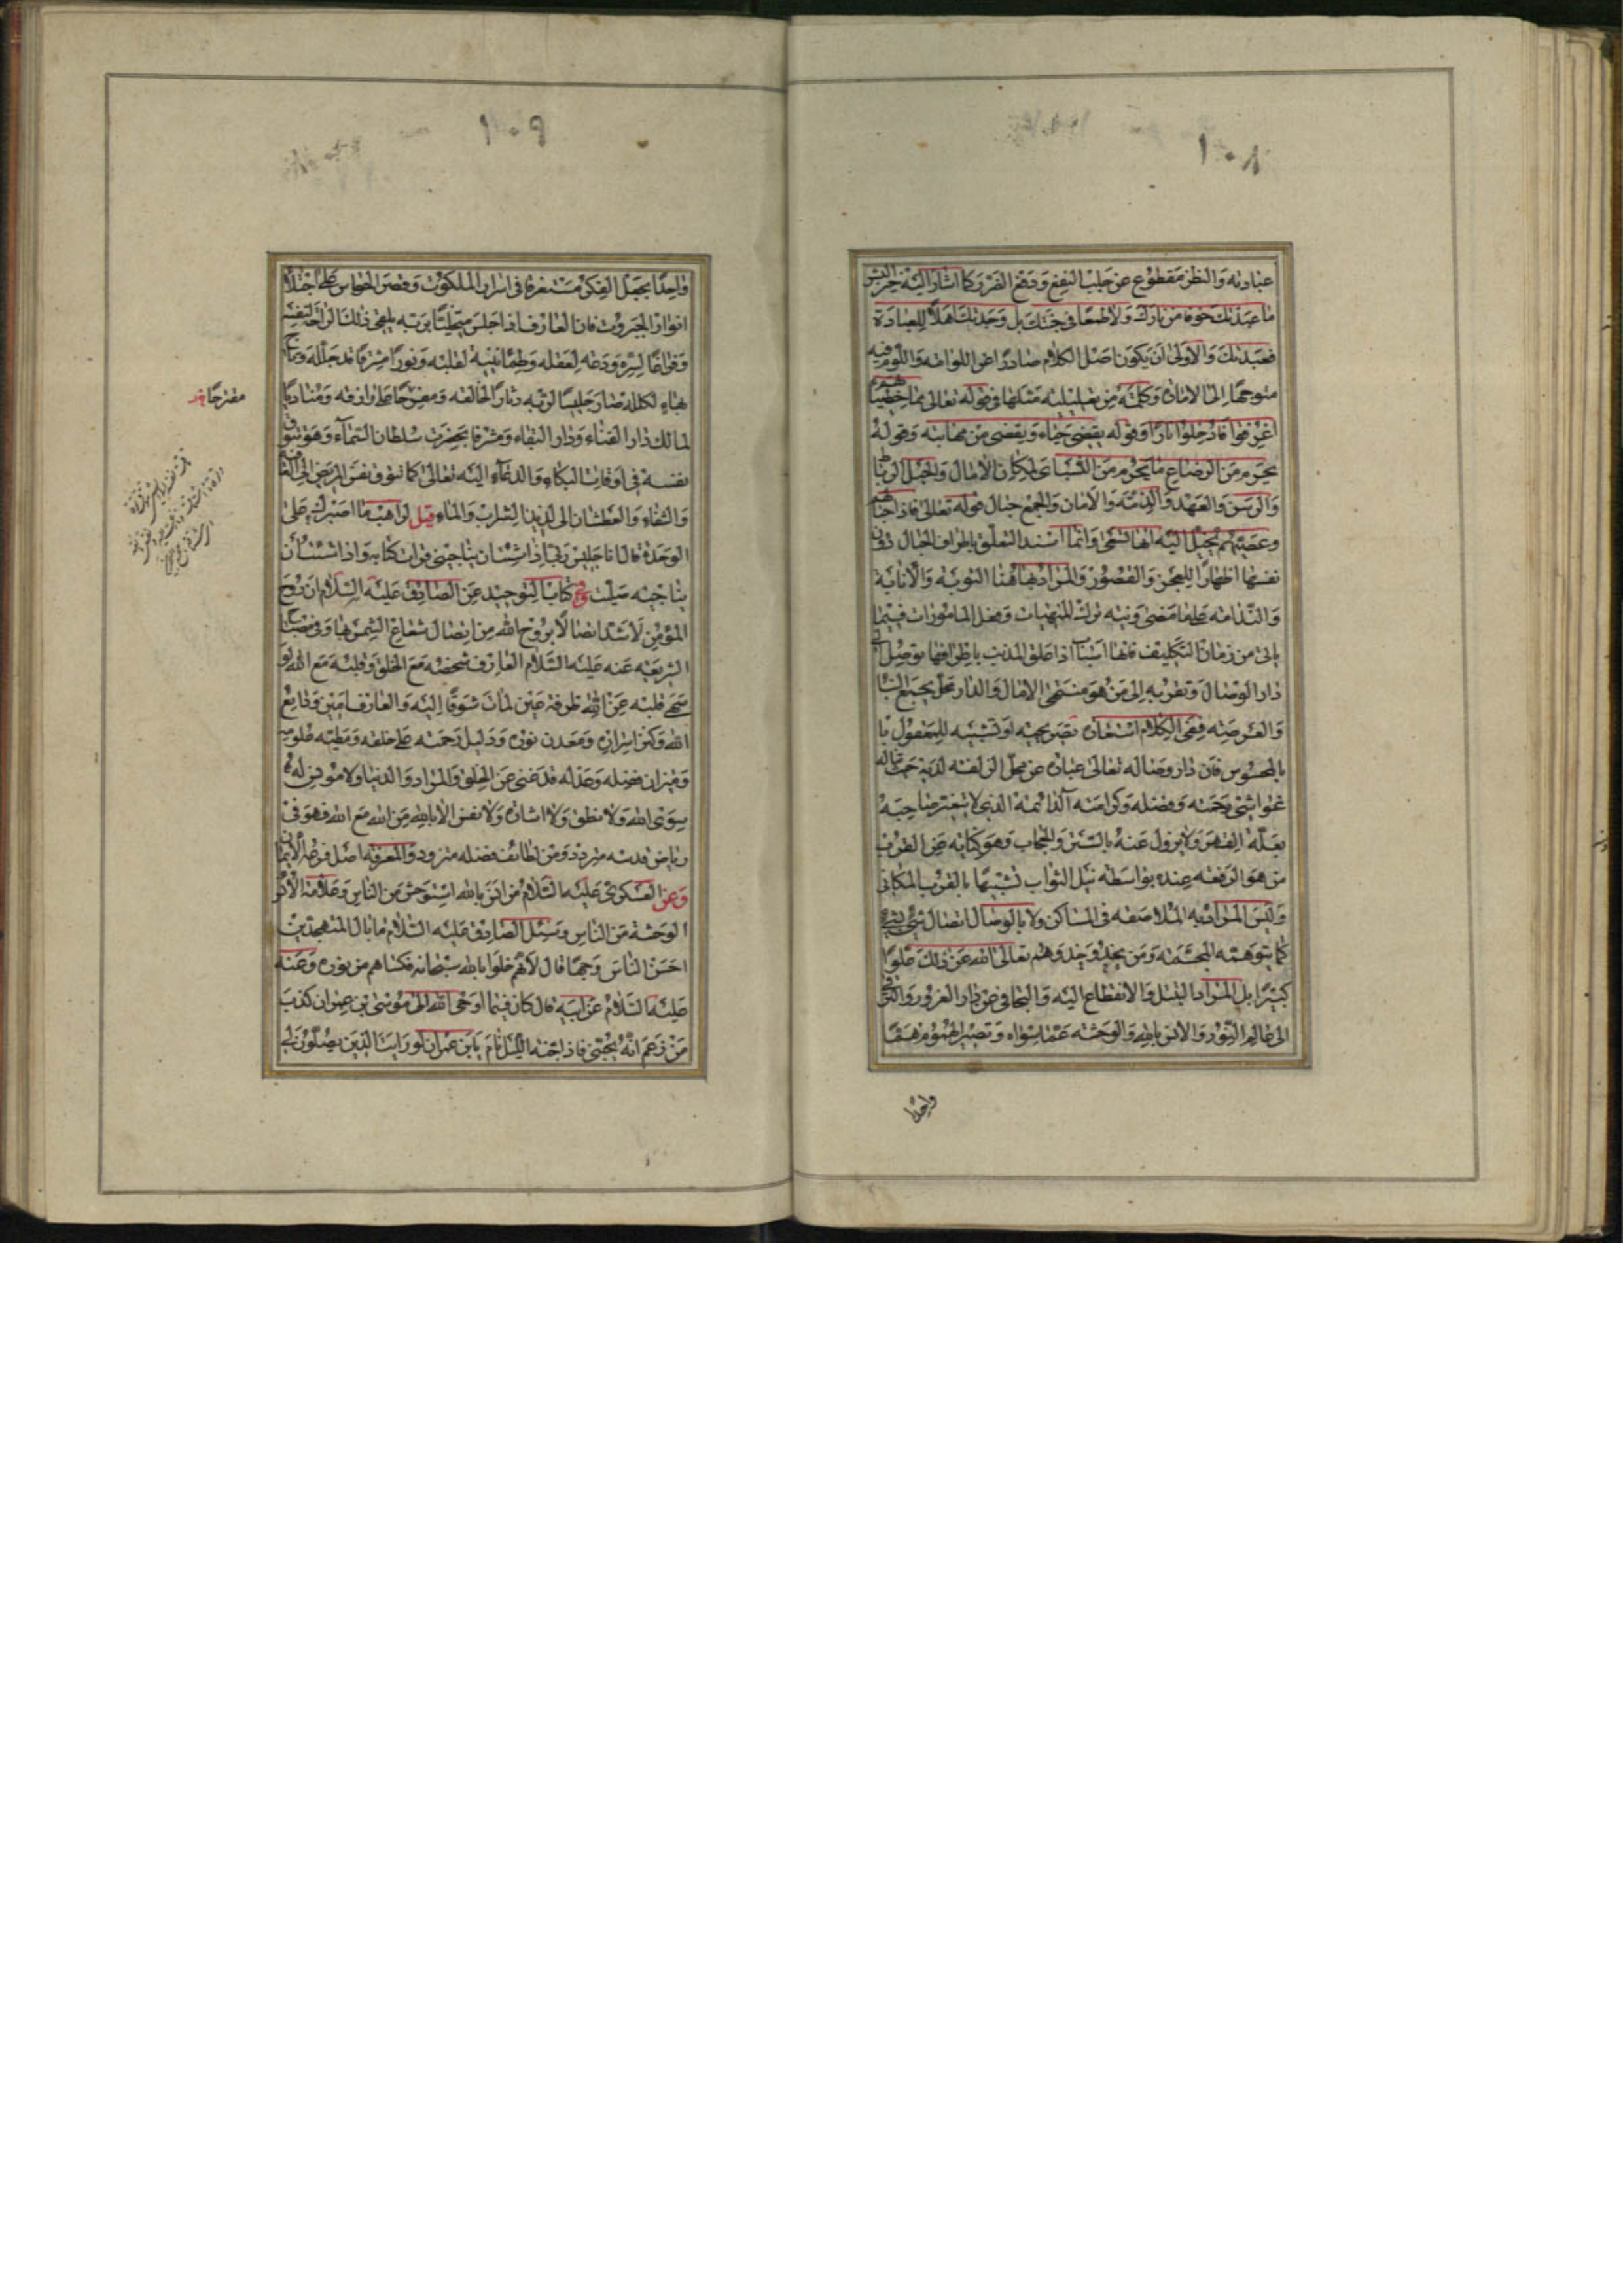 ١٠٨
عبادته والنظر مقطوع عن جلب النفع ودفع الضرر كما اشار اليه خير البشر
ما عبدتك خوفا من نارك ولا طمعا في جنتك بل وجدتك اهلا للعبادة
فعبدتك والاولى ان يكون اصل الكلام صادرا عن اللوامة واللوم فيه
متوجها الى الامارة وكلمة من تعليلية مثلها في قوله تعالى مما خطيئاتهم
اغرقوا فادخلوا نارا وقوله يغضي حياء ويغضى من مهابته وقوله
يحرم من الرضاع ما يحرم من النسب الامال والحبل الرباط
والرسن والعهد والذمة والامان والجمع حبال قوله تعالى فاذا حبالهم
وعصيهم يخيل اليه انها تسعى وانما اسند التعلق باطراف الحبال دون
نفسها اظهارا للعجز والقصور والمراد بها هنا التوبة والانابة
والندامة على ما مضى ونية ترك المنهيات وفعل المامورات فيما
ياتي من زمان التكليف فانها اسباب اذا علق المذنب باطرافها توصل الى
دار الوصال وتقربه الى من هو منتهى الامال والدار محل يجمع البناء
والعرصة ففي الكلام استعارة تصريحية او تشبيه للمعقول با
بالمحسوس فان دار وصاله تعالى عبارة عن محل الزلفة لديه
غواشي رحمته وفضله وكرامته الدائمة الذي لا يتغير صاحبه
بعلة القهر ولا يزول عنه بالستر والحجاب وهو كناية عن القرب
من هو الرفعة عنده بواسطة نيل الثواب تشبيها بالقرب المكاني
وليس المراد به الملاصقة في المساكن ولا بالوصال اتصال شيء بشيء
كما يتوهمه المجسمة ومن يحذو حذوهم تعالى الله عن ذلك علوا
كبيرا بل المراد التبتل والانقطاع اليه والتجافي عن دار الغرور والترقي
الى عالم النور والانس بالله والوحشة عما سواه وتصير الهموم هما
واحدا
١٠٩
واحدا يجعل الفكر مستغرقا في اسرار الملكوت وقصر الحواس على اجتلاء
انوار الجبروت فان العارف اذا جلس متخليا بربه يلهي ذلك الراحة لنفسه
وفراغا لسره ودعة لعقله وطمانينة لقلبه ونورا مشرقا قد جلله وتاج
بهاء لكلله صار جليسا لربه وتاركا لخالقه ومفرجا على وارفه ومناديا
لمالك دار الفناء ودار البقاء ومشرفا بحضرت سلطان السماء وهو يتوق
نفسه في اوقات البكاء والدعاء اليه تعالى كما تتوق نفس المريض الى العافية
والشفاء والعطشان الى لذيذ الشراب والماء قيل لراهب ما اصبرك على
الوحدة قال انا جليس ربي اذا شئت ان يناجيني قرات كتابه واذا شئت ان
يناجيه صليت وفي كتاب التوحيد عن الصادق عليه السلام ان روح
المؤمن لاشد اتصالا بروح الله من اتصال شعاع الشمس بها وفي مصباح
الشريعة عنه عليه السلام العارف شخصه مع الخلق وقلبه مع الله لو
سهى قلبه عن الله طرفة عين لمات شوقا اليه والعارف امين ودائع
الله وكنز اسراره ومعدن نوره ودليل رحمته على خلقه ومطية علومه
وميزان فضله وعدله قد غنى عن الخلق والمراد والدنيا ولا مونس له
سوى الله ولا نطق ولا اشارة ولا نفس الا بالله من الله مع الله فهو في
رياض قدسه متردد ومن لطائف فضله متزود والمعرفة اصل فرعه الايمان
وعن العسكري عليه السلام من انس بالله استوحش من الناس وعلامة الانس
الوحشة من الناس وسئل الصادق عليه السلام ما بال المتهجدين
احسن الناس وجها قال لانهم خلوا بالله سبحانه فكساهم من نوره وعنه
عليه السلام عن ابيه قال كان فيما اوحى الله الى موسى بن عمران كذب
من زعم انه يحبني فاذا جنه الليل نام يابن عمران لو رايت الذين يصلون لي
مفترحا